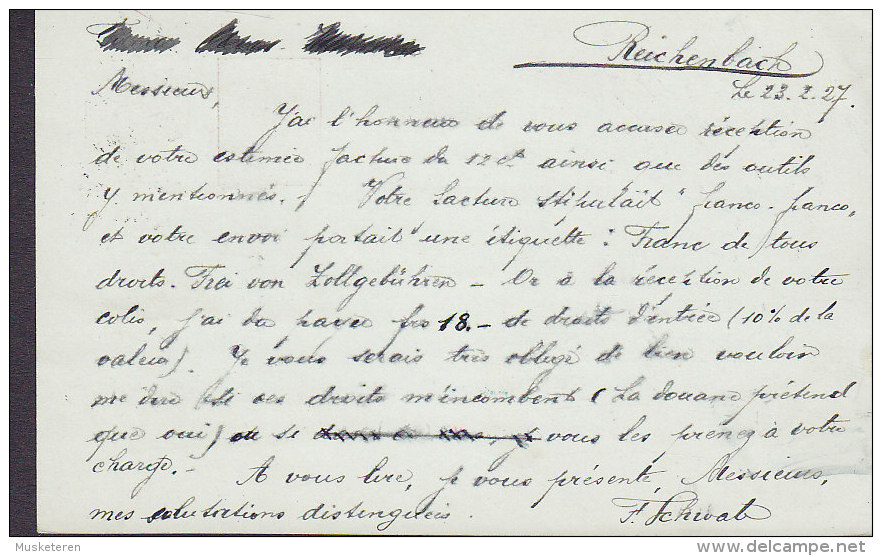 Reichenbach
Le 23.2.27.
Messieurs,
J'ai l'honneur de vous accuser réception
de votre estimée facture du 12 ct ainsi que des outils
y mentionnés. Votre facture stipulait " franco-franco,
et votre envoi portait une étiquette : Franc de tous
droits. Frei von Zollgebühren – Or à la réception de votre
colis, j'ai du payer frs 18.- de droits d'entrée (10% de la
valeur). Je vous serais très obligé de bien vouloir
me dire si ces droits m'incombent (La douane prétend
que oui) ou si vous les prenez à votre
charge.-
A vous lire, je vous présente, Messieurs,
mes salutations distinguées.
F. Schwab
Musketeren
delcampe.net